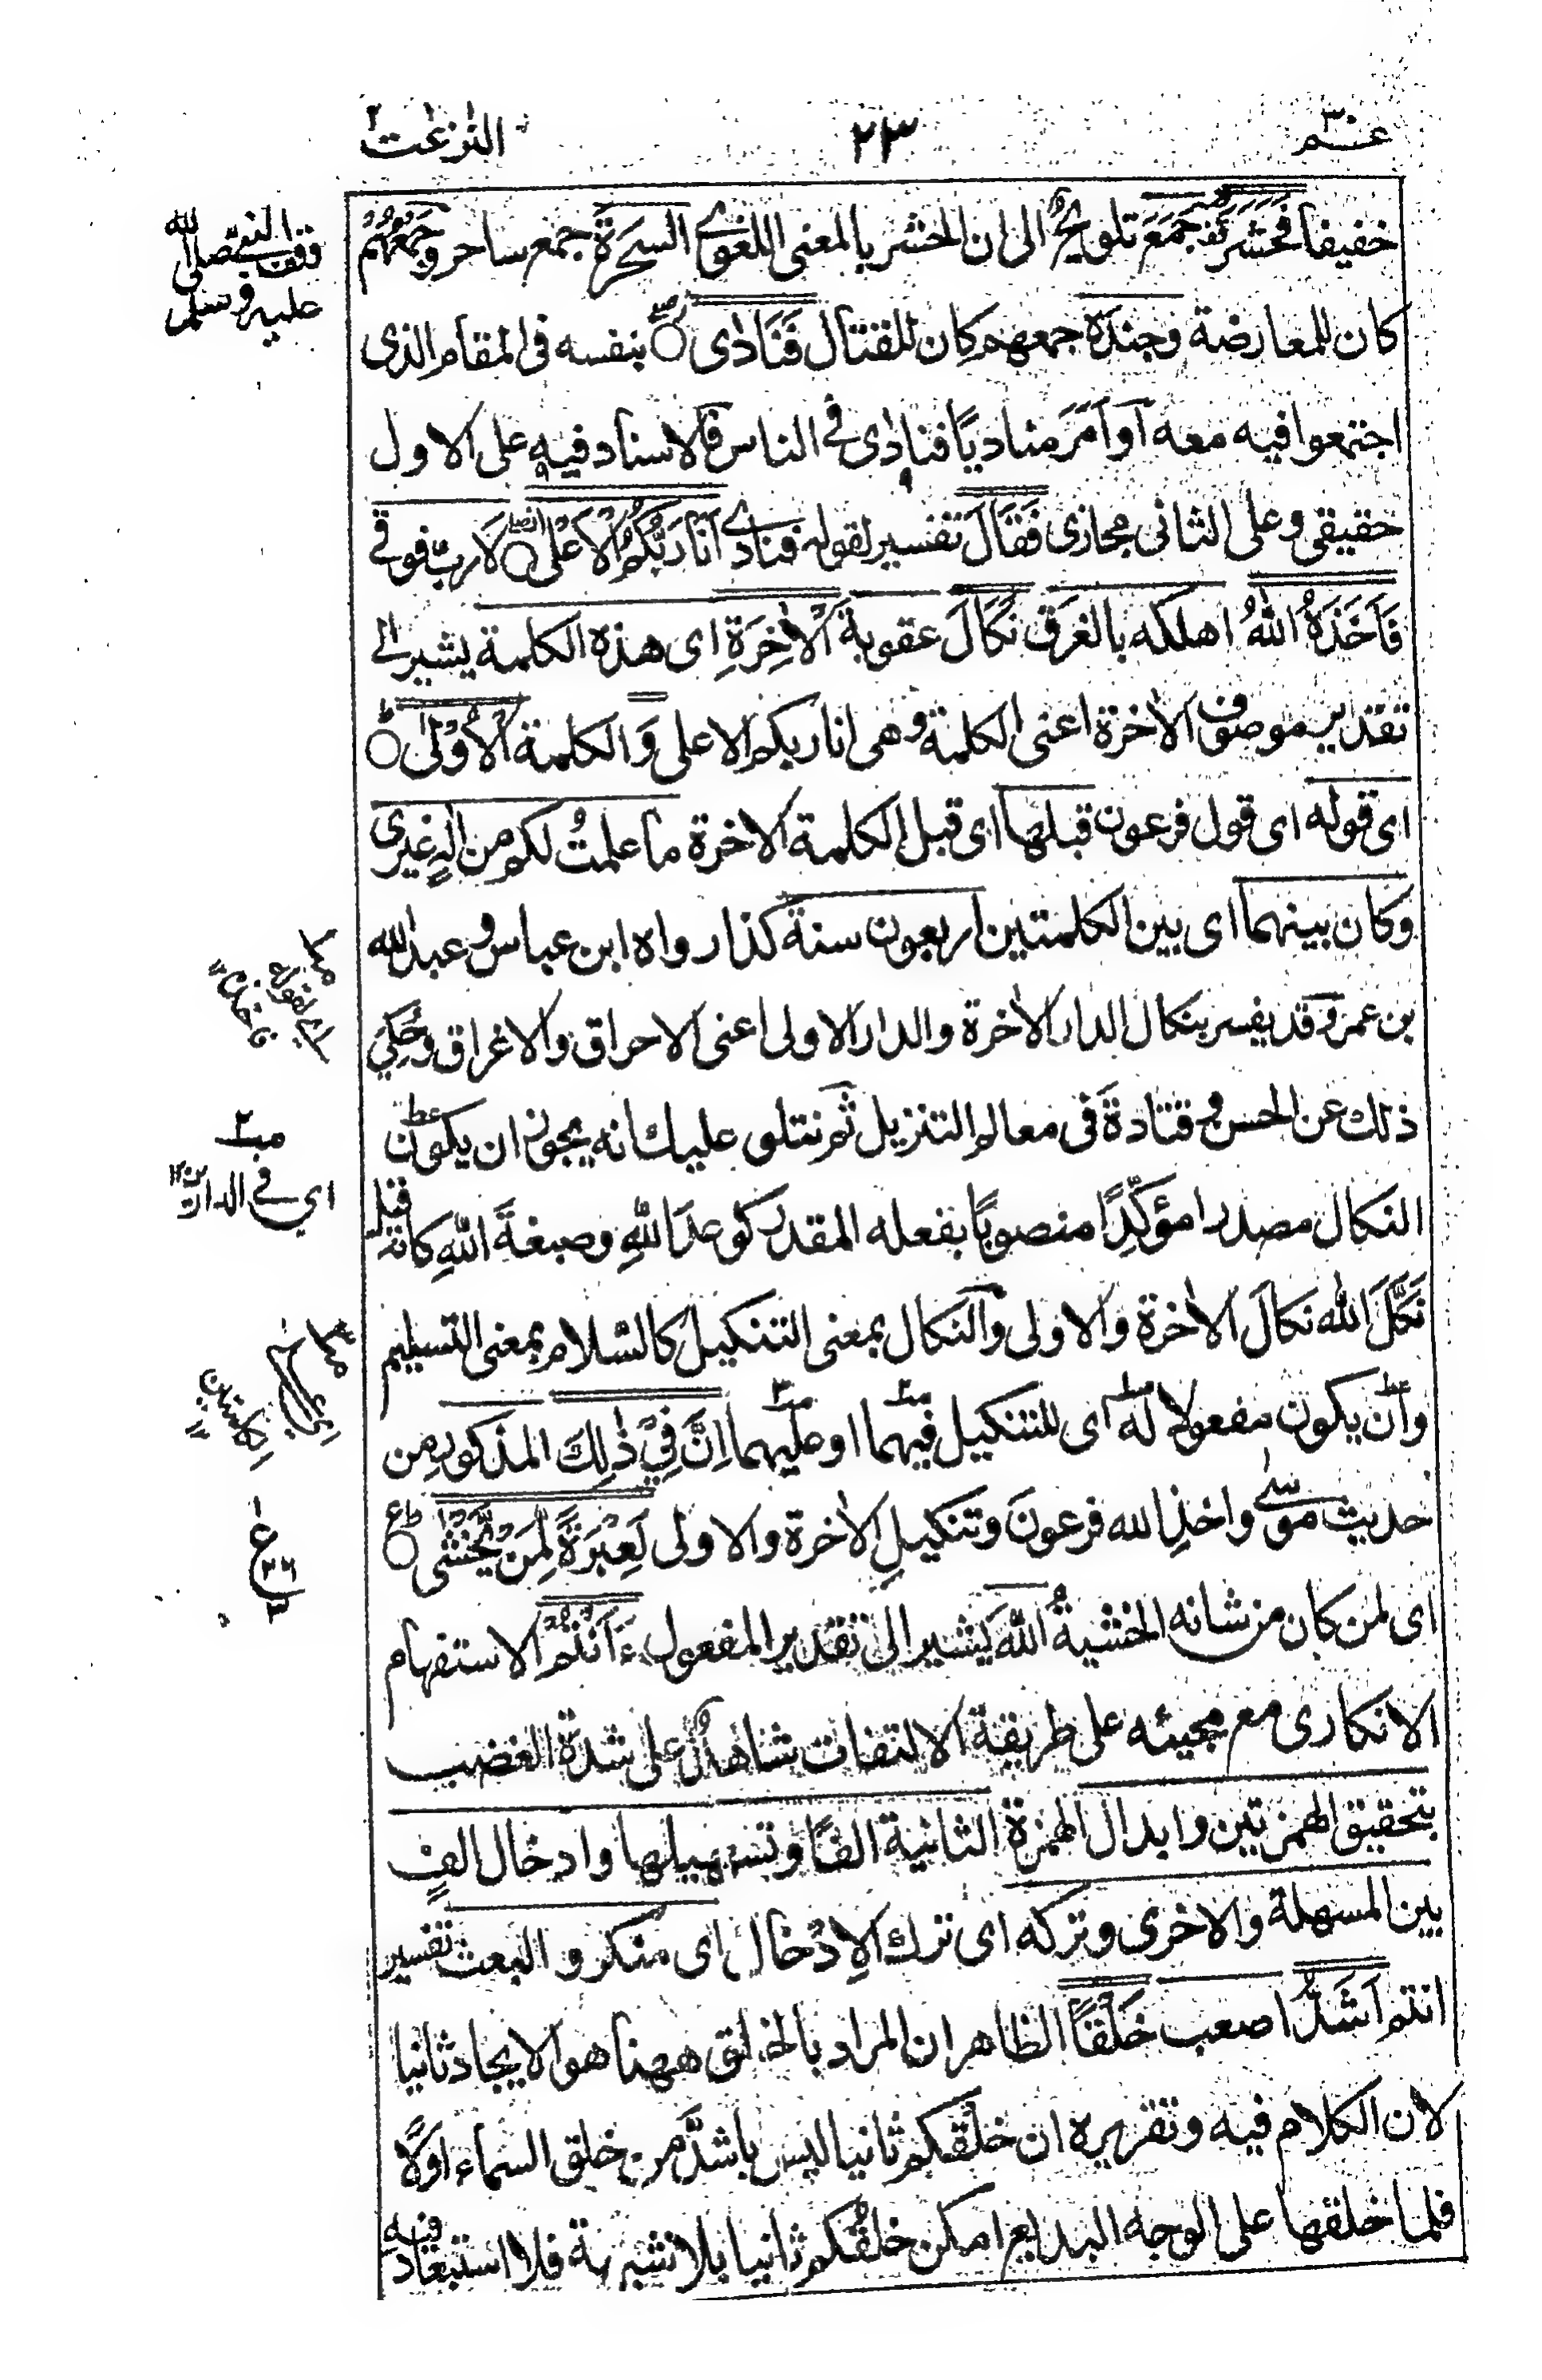 عم ٣٠
٢٣
النزعت
خفيفا فَحَشَرَ جَمَعَ تلويحٌ الى ان الحشر بالمعنى اللغوي السَحَرَةَ جمع ساحر وجَمْعُهُمْ
كان للمعارضة وجندَه جمعهم كان للقتال فَنَادٰى بنفسه فى المقام الذى
اجتمعوا فيه معه اَو اَمَرَ مناديًا فنادٰى في الناس فالاسناد فيه على الاول
حقيقى وعلى الثانى مجازى فَقَالَ تفسير لقوله فنادٰى اَنَا رَبُّكُمُ الْاَعْلٰى لا ربّ فوقي
فَاَخَذَهُ اللّٰهُ اهلكه بالغرق نَكَالَ عقوبة الْاٰخِرَةِ اى هذه الكلمة يشير الى
تقدير موصوف الاٰخرة اعنى الكلمة وهى انا ربكم الاعلى وَ الكلمة الْاُوْلٰى
اى قوله اى قول فرعون قبلها اى قبل الكلمة الاٰخرة ما علمتُ لكم من اِلٰهٍ غيرى
وكان بينهما اى بين الكلمتين اربعون سنة كذا رواه ابن عباس وعبد الله
بن عمر وقد يفسر بنكال الدار الاٰخرة والدار الاولى اعنى الاحراق والاغراق وحُكِيَ
ذلك عن الحسن وقتادة فى معالم التنزيل ثم نتلو عليك انه يجوز ان يكون
النكال مصدرا مؤكِّدًا منصوبًا بفعله المقدر كوعدَ اللهِ وصبغةَ اللهِ كانه قيل
نَكَّلَ الله نكالَ الاٰخرة والاولى والنكال بمعنى التنكيل كالسلام بمعنى التسليم
وان يكون مفعولا له اى للتنكيل فيهما او عليهما اِنَّ فِيْ ذٰلِكَ المذكور مِن
حديث موسٰى واخذِ الله فرعونَ وتنكيلِ الاٰخرة والاولى لَعِبْرَةً لِّمَنْ يَّخْشٰى
اى لمن كان من شانه الخشيةُ اللهَ يشير الى تقدير المفعول ءَاَنْتُمْ الاستفهام
الانكارى مع مجيئه على طريقة الالتفات شاهدٌ على شدة الغضب
بتحقيق الهمزتين وابدال الهمزة الثانية الفًا وتسهيلها وادخال الفٍ
بين المسهلة والاخرى وتركه اى ترك الاِدخال اى منكرو البعث تفسير
انتم اَشَدُّ اصعب خَلْقًا الظاهر ان المراد بالخلق ههنا هو الايجاد ثانيا
لان الكلام فيه وتقريره ان خلقكم ثانيا ليس باشدَّ من خلق السماء اوّلًا
فلما خلقها على الوجه البديع امكن خلقُكم ثانيا بلا شبهة فلا استبعاد فيه
وقف النبى صلى الله
عليه وسلم
اي لقوله
مــ٢ اي في الدارين ١٢
مــ٣ اى على الكلمتين
ع